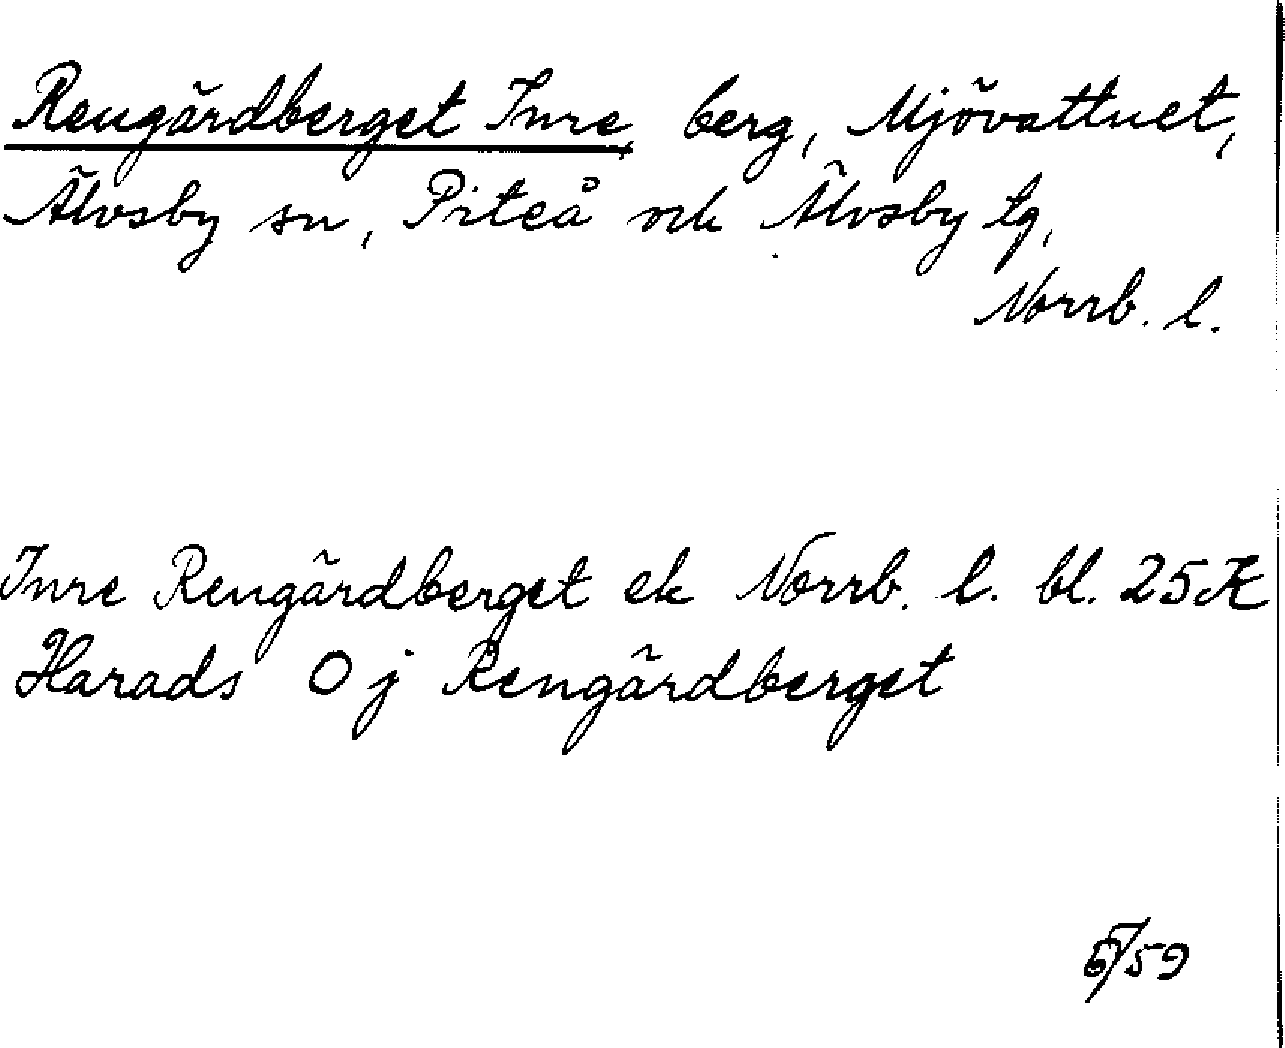 Rengärdberget Inre, berg, Mjövattnet,
Älvsby sn, Piteå och Älvsby tg,
Norrb. l.
Inre Rengärdberget ek Norrb. l. bl. 25K
Harads 0 j Rengärdberget
6/59